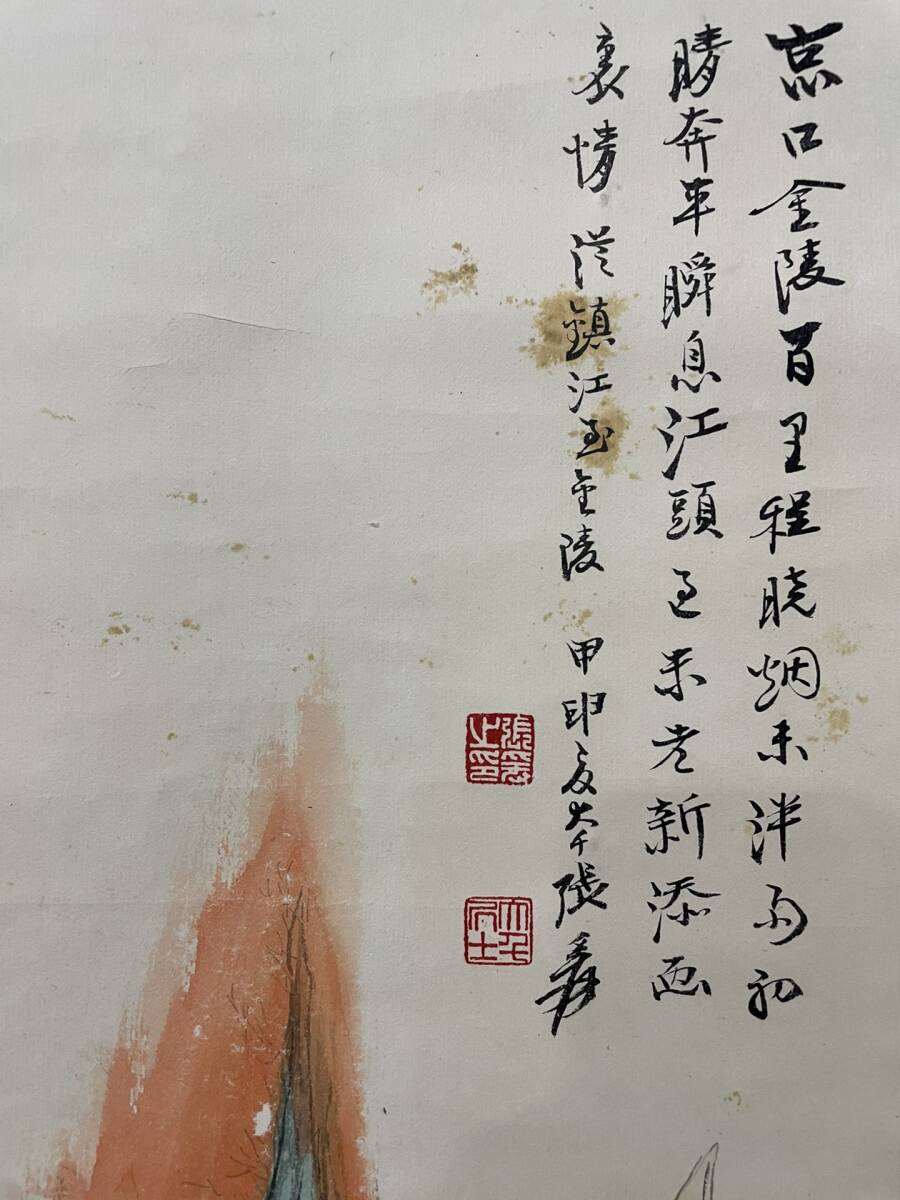 京口金陵百里程晓烟未泮雨初
晴奔车瞬息江頭过未老新添画
裏情 從鎮江至金陵 甲申夏大千張爰
張爰之印
大千居士